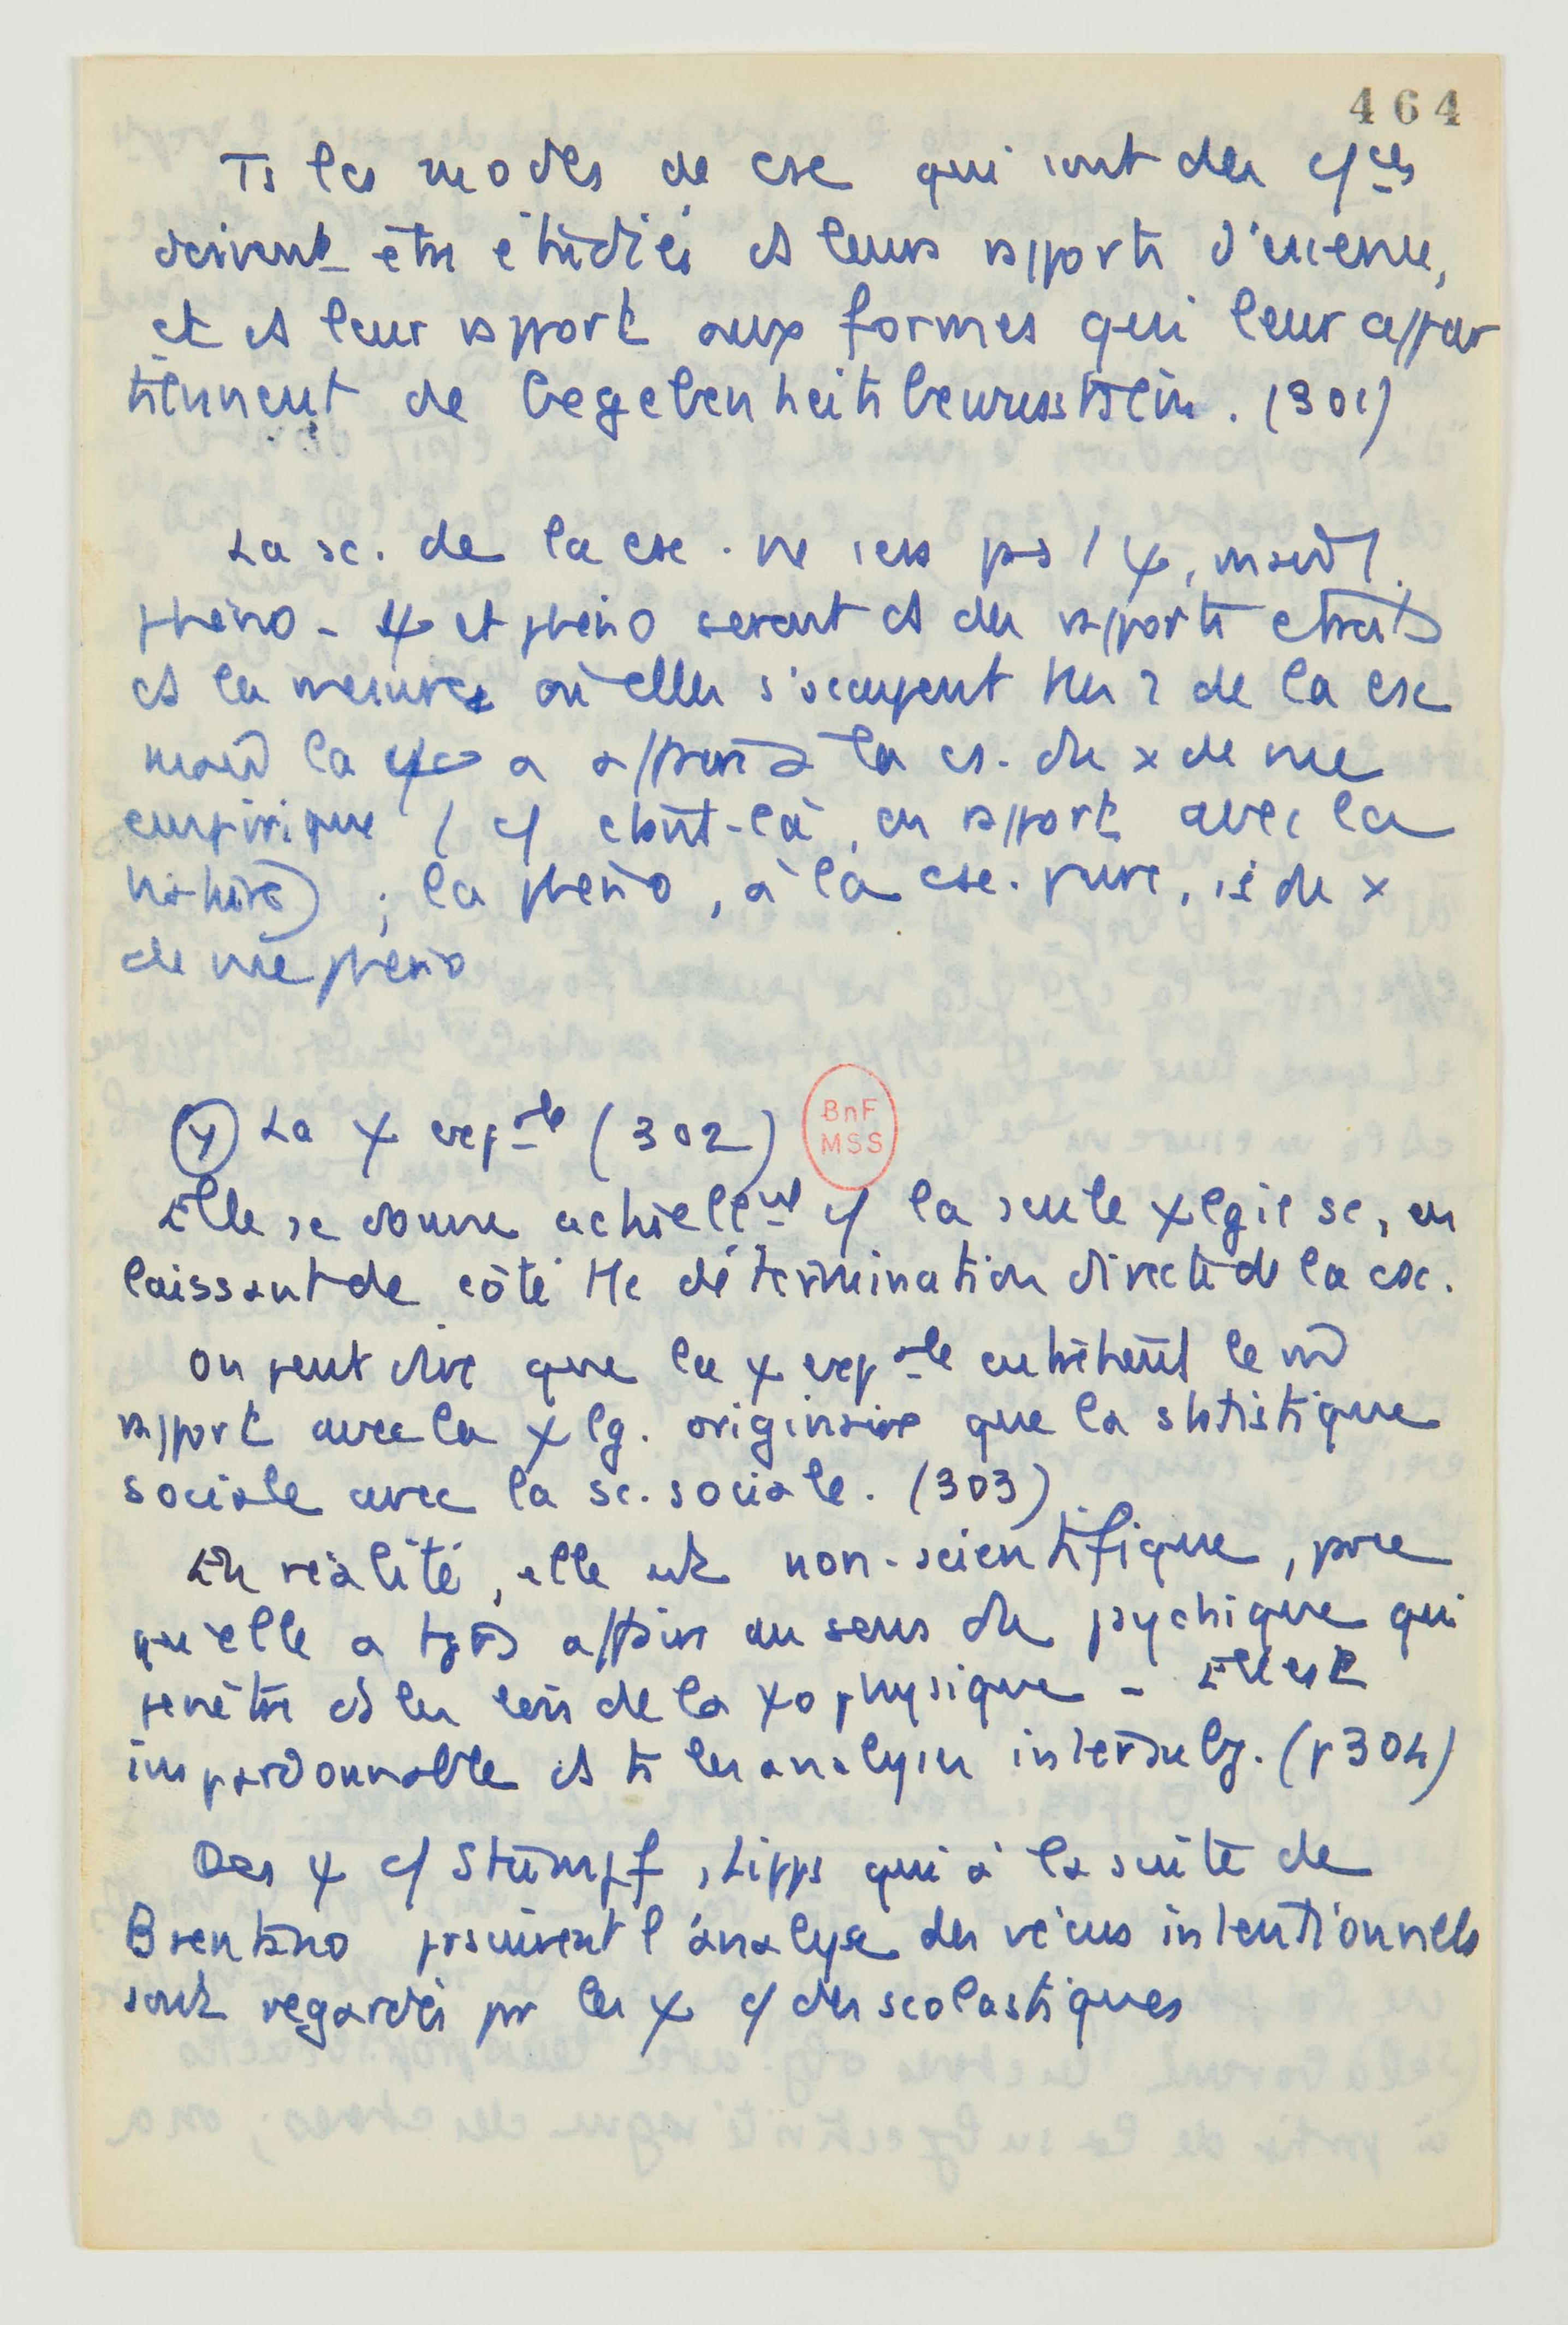 464
Ts les modes de cse qui sont des c/ces
doivent être étudiés ds leurs rapports d'essence,
et ds leur rapport aux formes qui leur appar
tiennent de Gegebenheitsbewusstsein. (301)
La sc. de la cse. ne sera pas 1 ψ, mais 1
phéno - ψ et phéno seront ds des rapports étroits
ds la mesure où elles s'occupent ttes 2 de la cse
mais la ψ a affaire à la cs. du x de vue
empirique (c/ étant-là, en rapport avec la
nature) ; la phéno, à la cse. pure, is du x
de vue phéno
γ La ψ expale (302)
BnF
MSS
Elle se donne actuellemt c/ la seule ψlgie sc, en
laissant de côté tte détermination directe de la cse.
On peut dire que la ψ expale entretient le m̂
rapport avec la ψlg. originaire que la statistique
sociale avec la sc. sociale. (303)
En réalité, elle est non-scientifique, parce
qu'elle a tjrs affaire au sens du psychique qui
pénètre ds les lois de la ψophysique - Elle est
impardonnable ds ts les analyses intersubj. (p 304)
Des ψ c/ Stumpf, Lipps qui à la suite de
Brentano poursuivent l'analyse des vécus intentionnels
sont regardés pr les ψ c/ des scolastiques